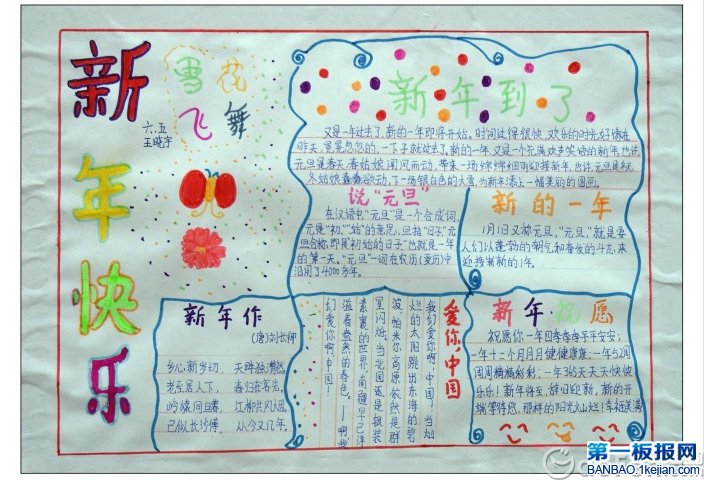 新
年
快
乐
雪花
飞舞
六.五
王晓宇
新年到了
又是一年过去了,新的一年即将开始。时间过得很快,欢乐的时光好像在
昨天,匆匆忽忽的,一下子就过去了。新的一年,又是一个充满欢声笑语的新年,也许,
元旦是春天,春姑娘闻风而动,带来一场绵绵细雨迎接新年,也许元旦是秋
冬姑娘蠢蠢欲动,下一场银白色的大雪,为新年添上一幅美丽的图画。
说“元旦”
在汉语中“元旦”是一个合成词
元是“初”、“始”的意思,旦指“日子”元
旦合称,即是“初始的日子”也就是一年
的第一天。“元旦”一词在农历(夏历)中
沿用了4000多年。
新的一年
1月1日又称元旦,“元旦”就是要
人们以蓬勃的朝气和奋发的斗志,来
迎接崭新的1年。
新年作
(唐)刘长卿
乡心新岁切, 天畔独潸然
老至居人下, 春归在客先。
岭猿同旦暮, 江柳共风烟
已似长沙傅, 从今又几年。
爱你,中国
我们爱你啊,中国!当灿
烂的太阳跳出东海的碧
波,帕米尔高原依然是群
星闪烁。当北国还是银装
素裹的世界,南疆早已洋
溢着盎然的春色。——啊我
们爱你啊中国!
新年祝愿
祝愿你一年四季季季平平安安;
一年十二个月月月健健康康;一年52周
周周精精彩彩;一年365天天天快快
乐乐!新年将至,辞旧迎新,新的开
端等待您,那样的阳光火山烂!幸福美满
第一板报网
BANBAO.1kejian.com